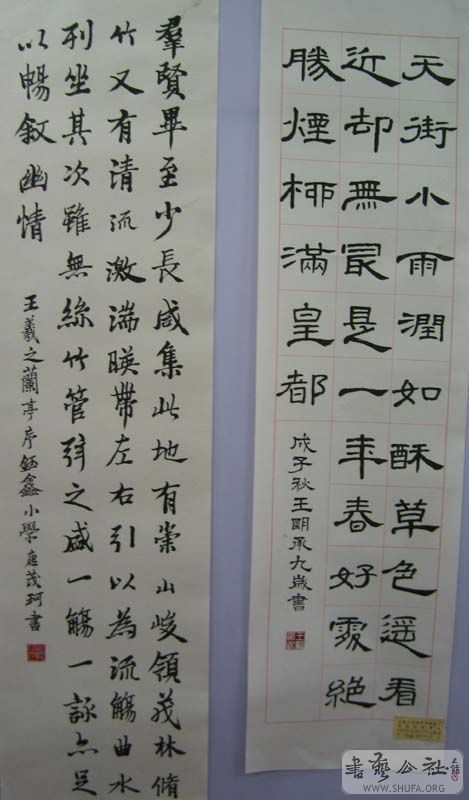 天街小雨潤如酥草色遥看
近却無最是一年春好處絕
勝煙柳滿皇都
戊子秋王明承九歲書
羣賢畢至少長咸集此地有崇山峻領茂林脩
竹又有清流激湍暎帶左右引以為流觴曲水
列坐其次雖無絲竹管弦之盛一觴一詠亦足
以暢敘幽情
王羲之蘭亭序鈺鑫小學唐茂珂書
書藝公社
WWW.SHUFA.ORG